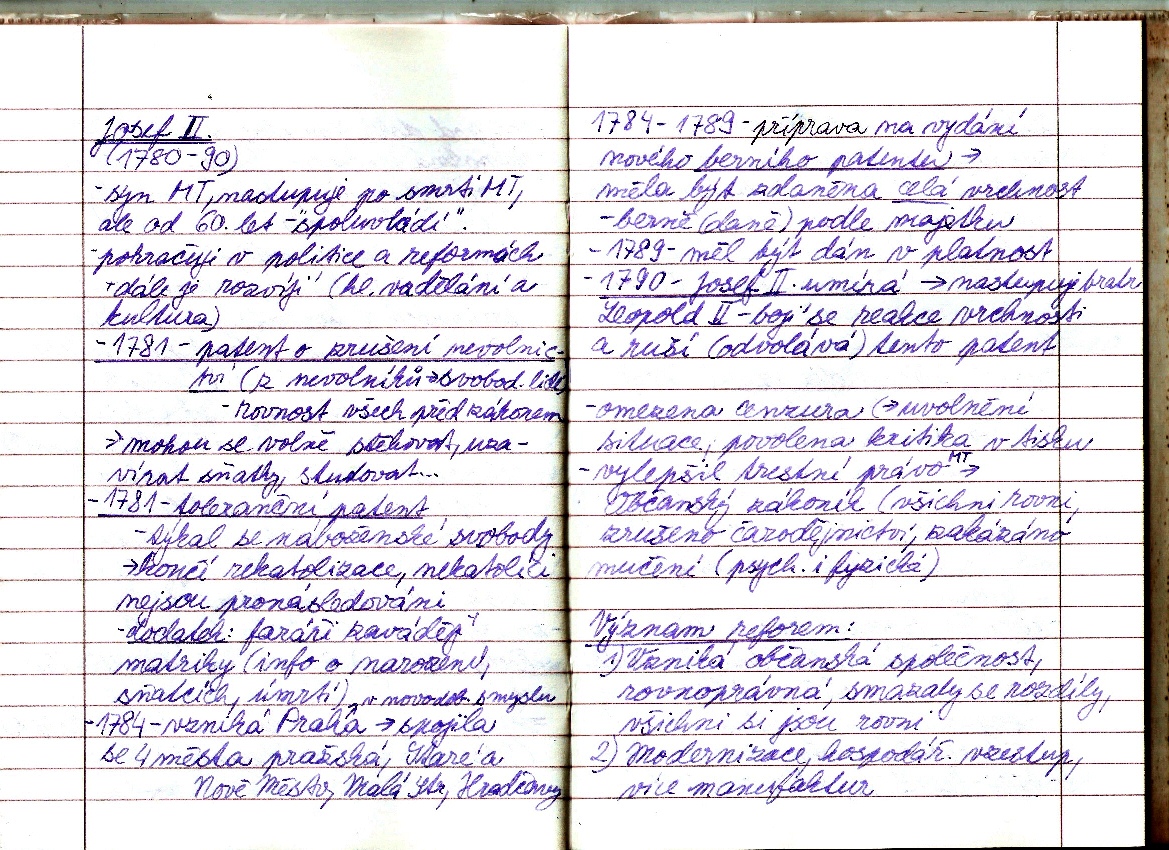 Josef II.
(1780-90)
- syn MT, nastupuje po smrti MT,
ale od 60. let - "spoluvládí".
- pokračuji v politice a reformách
+ dále je rozvíjí (hl. vzdělání a
kultura)
- 1781 - patent o zrušení nevolnic-
tví (z nevolníků → svobod. lidé)
- rovnost všech před zákonem
→ mohou se volně stěhovat, uza-
vírat sňatky, studovat...
- 1781 - toleranční patent
- týkal se náboženské svobody
→ končí rekatolizace, nekatolíci
nejsou pronásledováni
- dodatek: faráři zavádějí
matriky (info o narození,
sňatcích, úmrtí), v novodob. smyslu
- 1784 - vzniká Praha → spojila
se 4 města pražská, Staré a
Nové Město, Malá Str., Hradčany
1784 - 1789 - příprava na vydání
nového berního patentu →
měla být zdaněna celá vrchnost
- berně (daně) podle majetku
- 1789 - měl být dán v platnost
- 1790 - Josef II. umírá → nastupuje bratr
Leopold II - bojí se reakce vrchnosti
a ruší (odvolává) tento patent
- omezena cenzura (→ uvolnění
situace, povolena kritika v tisku
- vylepšil trestní právo MT →
Občanský zákoník (všichni rovni,
zrušeno čarodějnictví, zakázáno
mučení (psych. i fyzická)
Význam reforem:
1) Vzniká občanská společnost,
rovnoprávná, smazaly se rozdíly,
všichni si jsou rovni
2) Modernizace, hospodář. vzestup,
více manufaktur